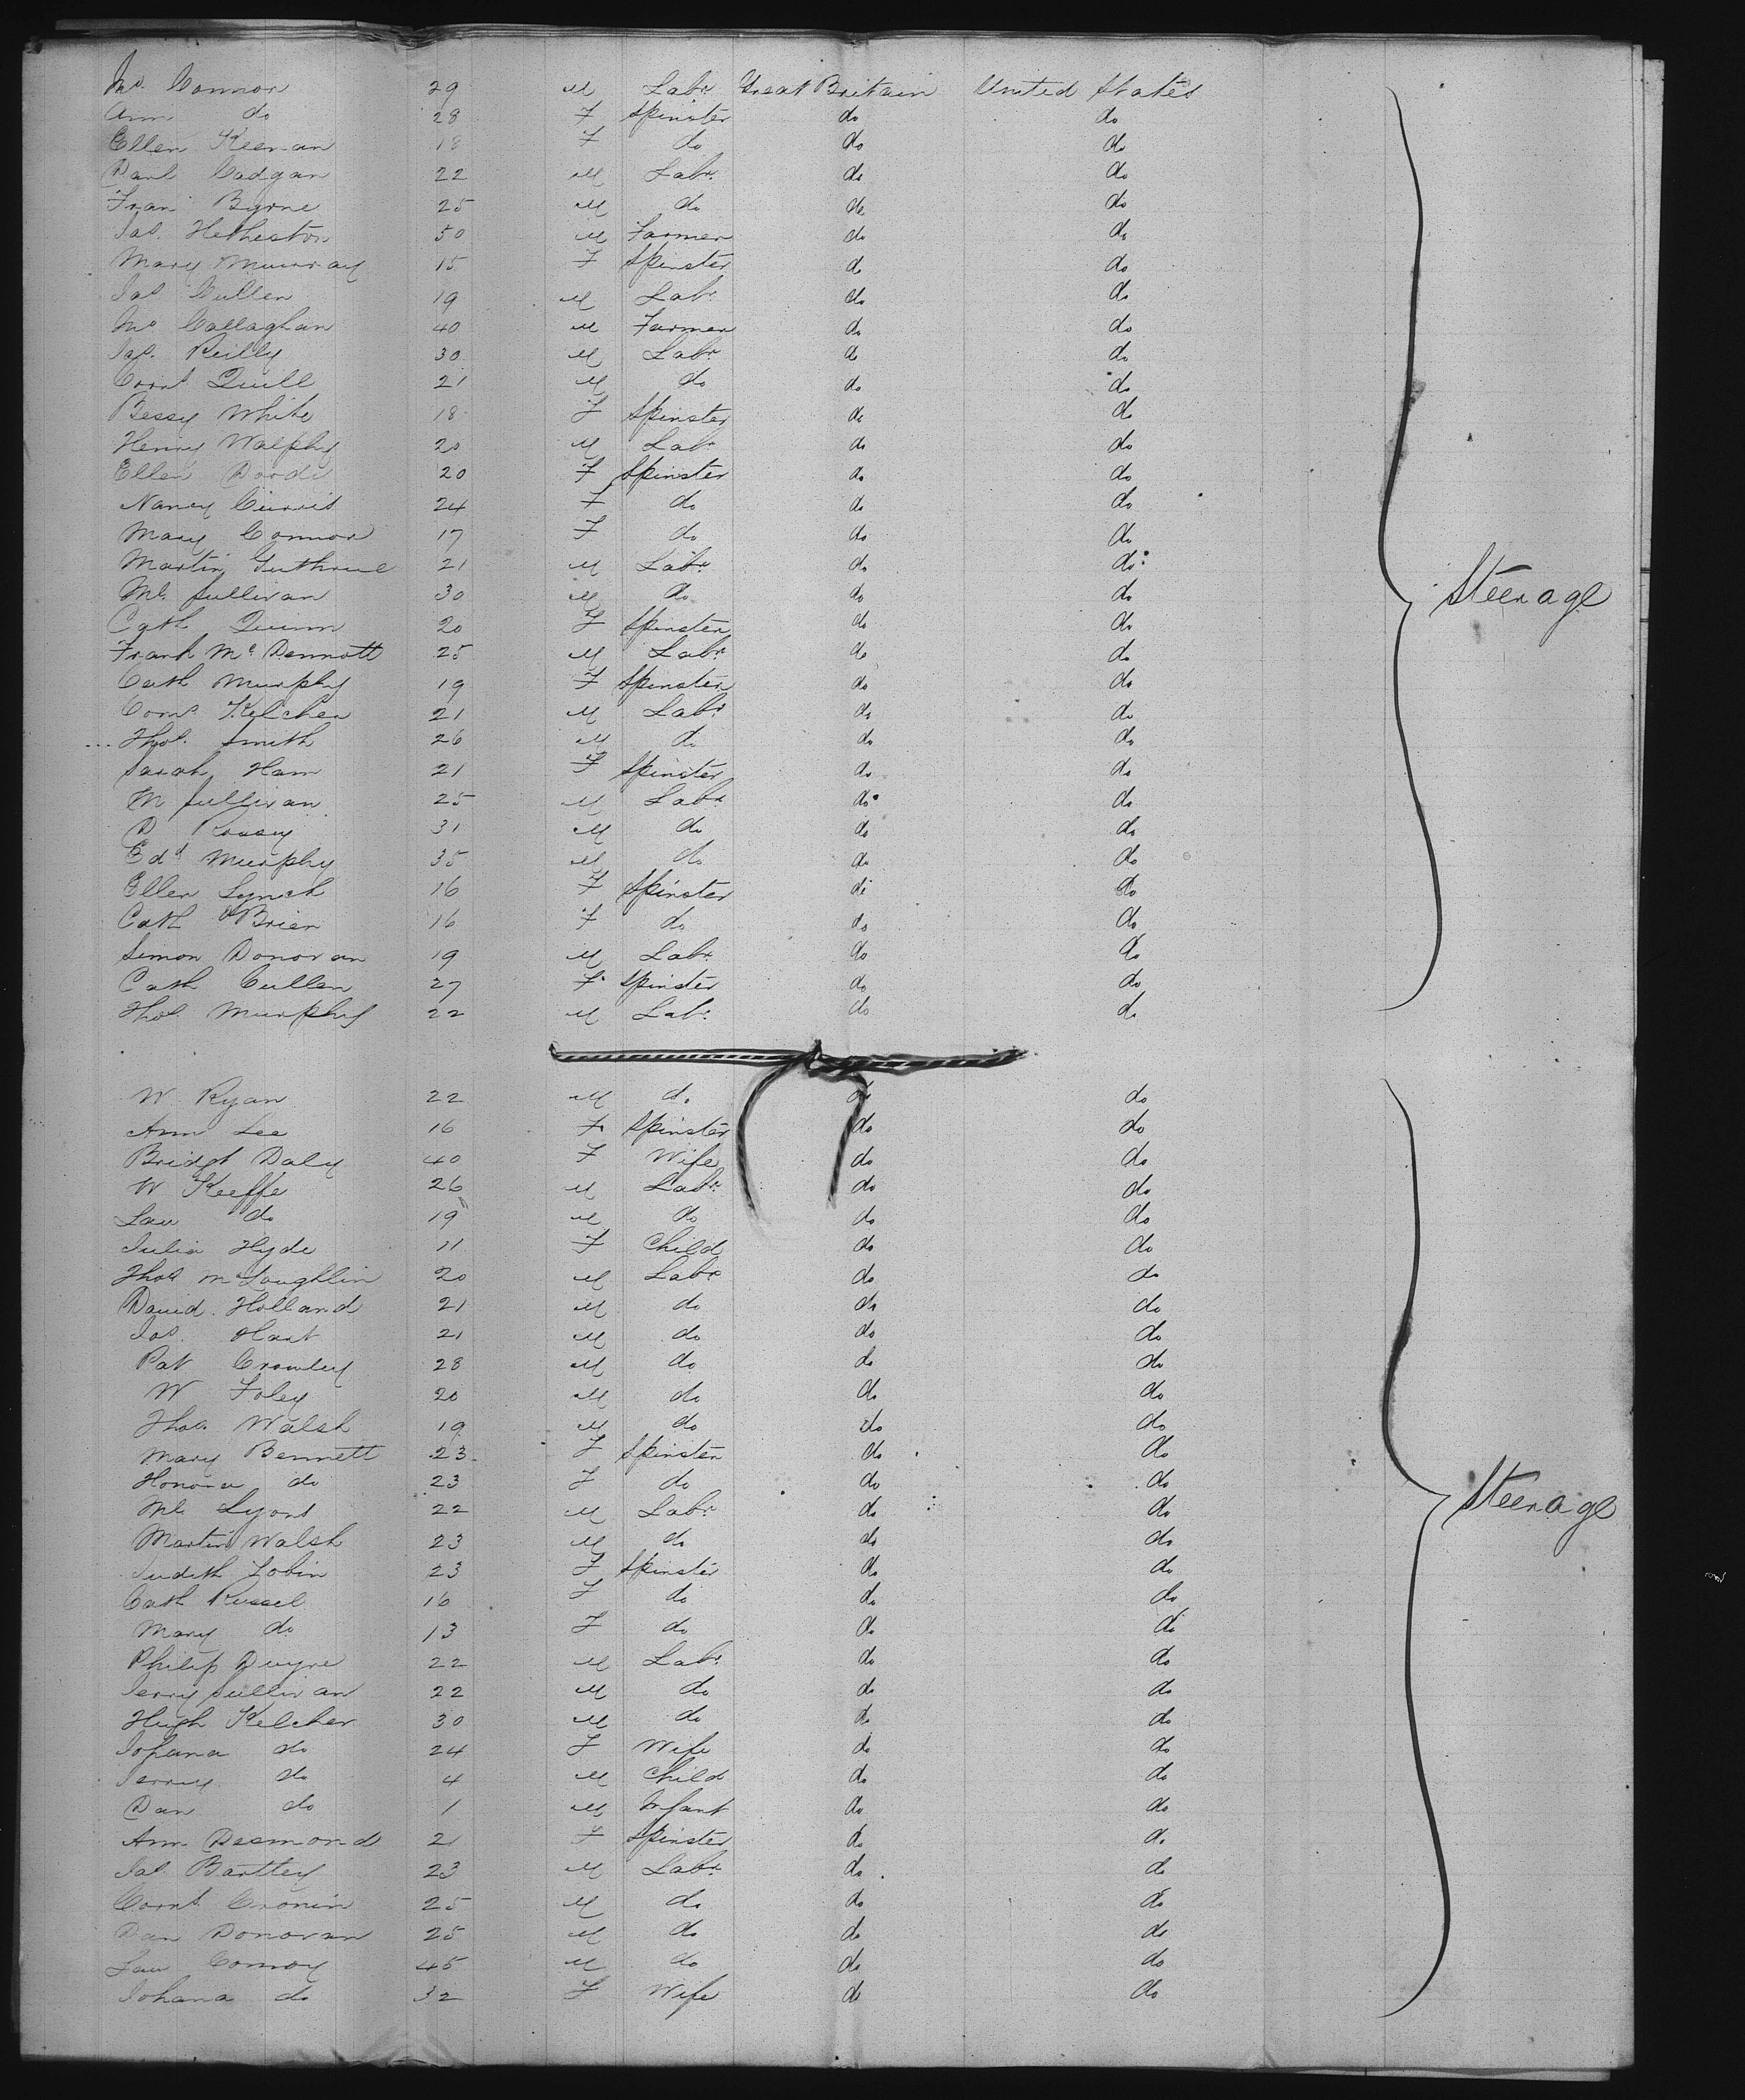 Jno. Connor 29 M Labr. Great Britain United States
Ann do 28 F Spinster do do
Ellen Keenan 18 F do do do
Danl Cadgan 22 M Labr. do do
Fran Byrne 25 M do do do
Jas. Hetheston 50 M Farmer do do
Mary Murray 15 F Spinster do do
Jas Cullen 19 M Labr do do
Jno Callaghan 40 M Farmer do do
Jas. Reilly 30 M Labr do do
Cornl Quill 21 M do do do
Bessy White 18 F Spinster do do
Henry Walphy 20 M Labr do do
Ellen 20 F Spinster do do
Nancy Currid 24 F do do do
Mary Connor 17 F do do do
Martin Guthrue 21 M Labr. do do
Ml. Sullivan 30 M do do do
Steerage
Cath Quinn 20 F Spinster do do
Frank Mc Dermott 25 M Labr. do do
Cath Murphy 19 F Spinster do do
Corns Kelcher 21 M Labr do do
Thos. Smith 26 M do do do
Sarah Ham 21 F Spinster do do
M Sullivan 25 M Labr do do
D 31 M do do do
Edd Murphy 35 M do do do
Ellen Lynch 16 F Spinster do do
Cath OBrien 16 F do do do
Simon Donovan 19 M Labr. do do
Cath Cullen 27 F Spinster do do
Thos. Murphy 22 M Labr. do do
W Ryan 22 M do do do
Ann Lee 16 F Spinster do do
Bridgt Daly 40 F Wife do do
W Keeffe 26 M Labr. do do
Law do 19 M do do do
Julia Hyde 11 F Child do do
Thos McLoughlin 20 M Labr do do
David Holland 21 M do do do
Jas. Hart 21 M do do do
Pat Crowley 28 M do do do
W Foley 20 M do do do
Thos. Walsh 19 M do do do
Mary Bennett 23 F Spinster do do
Honora do 23 F do do do
Steerage
Ml Lyons 22 M Labr. do do
Martin Walsh 23 M do do do
Judith Tobin 23 F Spinster do do
Cath Russel 16 F do do do
Mary do 13 F do do do
Philip Dwyre 22 M Labr. do do
Jerry Sullivan 22 M do do do
Hugh Kelcher 30 M do do do
Johana do 24 F Wife do do
Jerry do 4 M Child do do
Dan do 1 M Infant do do
Ann Desmond 21 F Spinster do do
Jas Bartley 23 M Labr. do do
Cornl. Cronin 25 M do do do
Dan Donovan 25 M do do do
Law Conroy 45 M do do do
Johana do 32 F Wife do do